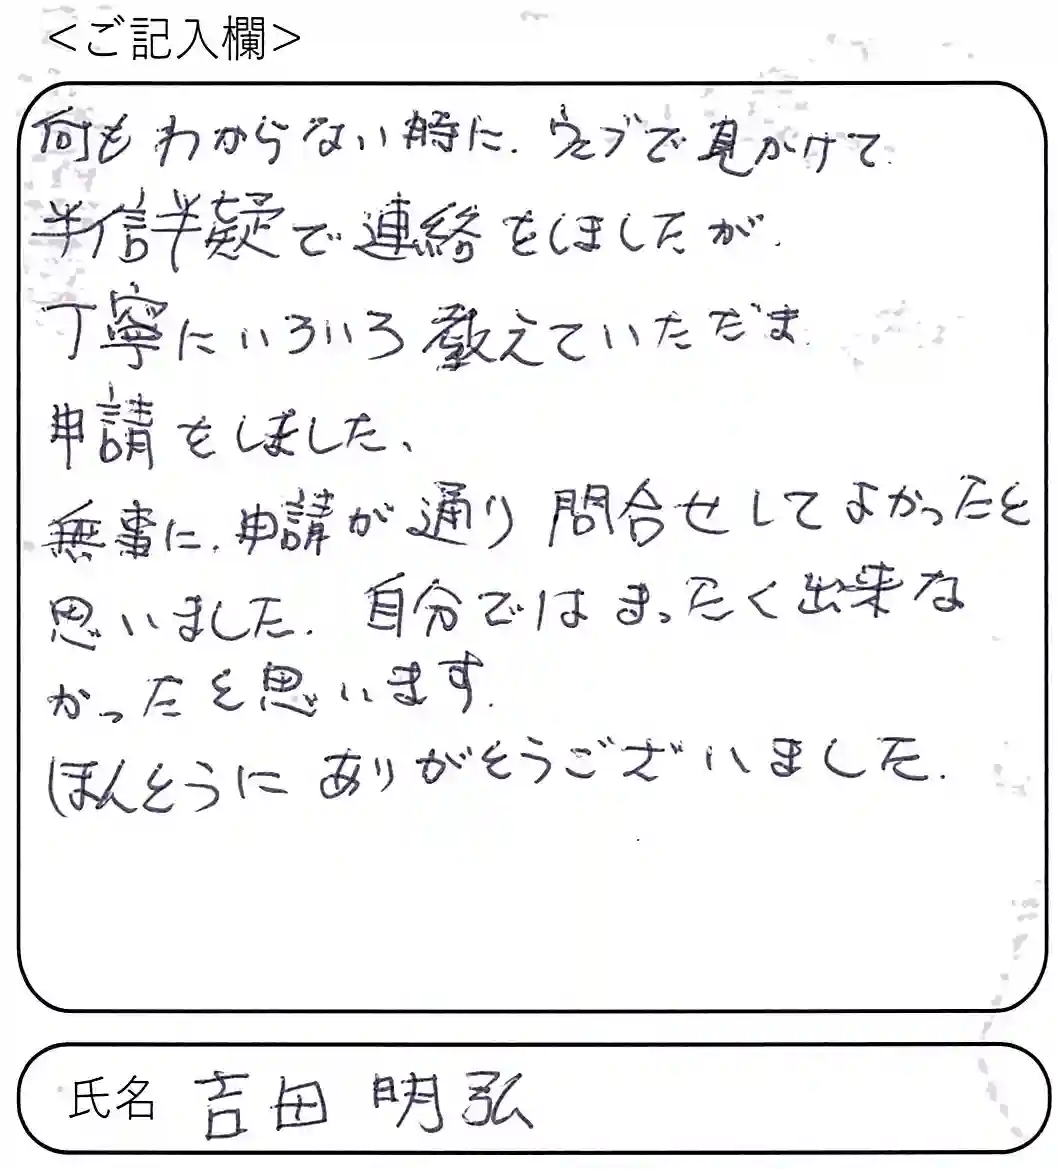 <ご記入欄>
何もわからない時に、ウェブで見かけて
半信半疑で連絡をしましたが、
丁寧にいろいろ教えていただき
申請をしました、
無事に、申請が通り問合せしてよかったと
思いました。自分ではまったく出来な
かったと思います。
ほんとうにありがとうございました。
氏名 吉田 明弘